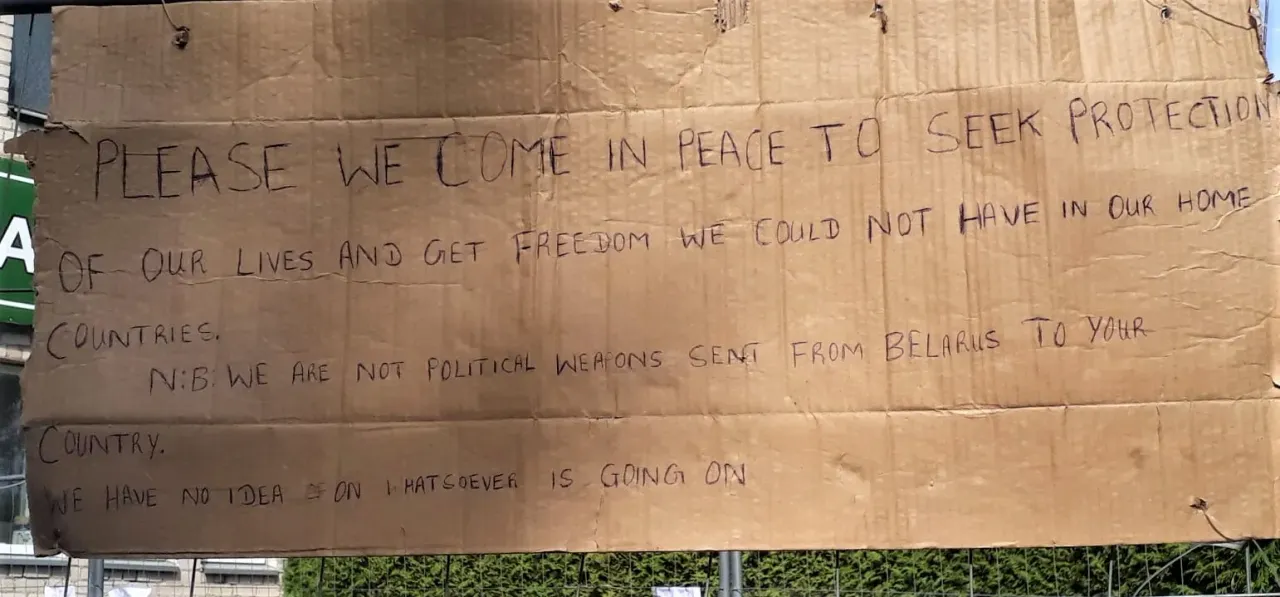 PLEASE WE COME IN PEACE TO SEEK PROTECTION
OF OUR LIVES AND GET FREEDOM WE COULD NOT HAVE IN OUR HOME
COUNTRIES.
N:B: WE ARE NOT POLITICAL WEAPONS SENT FROM BELARUS TO YOUR
COUNTRY.
WE HAVE NO IDEA ON WHATSOEVER IS GOING ON
A